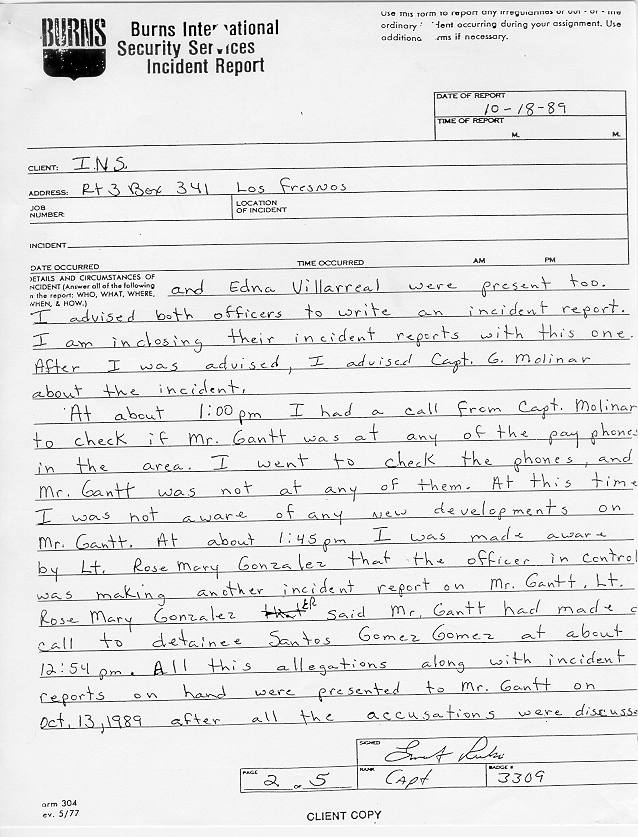 BURNS
Burns International
Security Services
Incident Report
Use this form to report any irregularities or out - or - the
ordinary incident occurring during your assignment. Use
additional forms if necessary.
DATE OF REPORT
10-18-89
TIME OF REPORT
M. M.
CLIENT: I.N.S.
ADDRESS: Rt 3 Box 341 Los Fresnos
JOB NUMBER: LOCATION OF INCIDENT
INCIDENT
DATE OCCURRED TIME OCCURRED AM PM
DETAILS AND CIRCUMSTANCES OF
INCIDENT (Answer all of the following
in the report: WHO, WHAT, WHERE,
WHEN, & HOW.)
and Edna Villarreal were present too.
I advised both officers to write an incident report.
I am inclosing their incident reports with this one.
After I was advised, I advised Capt. G. Molinar
about the incident.
At about 1:00 pm I had a call from Capt. Molinar
to check if Mr. Gantt was at any of the pay phones
in the area. I went to check the phones, and
Mr. Gantt was not at any of them. At this time
I was not aware of any new developments on
Mr. Gantt. At about 1:45 pm I was made aware
by Lt. Rose Mary Gonzalez that the officer in control
was making another incident report on Mr. Gantt. Lt.
Rose Mary Gonzalez that ER said Mr. Gantt had made a
call to detainee Santos Gomez Gomez at about
12:54 pm. All this allegations along with incident
reports on hand were presented to Mr. Gantt on
Oct. 13, 1989 after all the accusations were discusse
SIGNED
PAGE 2 OF 5
RANK Capt
BADGE # 3309
orm 304
ev. 5/77
CLIENT COPY